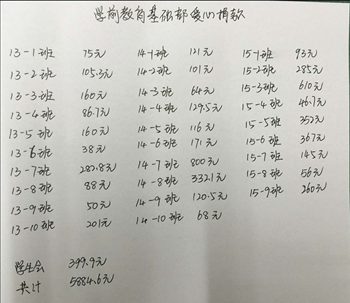 学前教育基础部爱心捐款
13-1班 75元 14-1班 121元 15-1班 93元
13-2班 105.3元 14-2班 101元 15-2班 285元
13-3班 160元 14-3班 64元 15-3班 610元
13-4班 86.7元 14-4班 129.5元 15-4班 46.7元
13-5班 160元 14-5班 116元 15-5班 352元
13-6班 38元 14-6班 171元 15-6班 367元
13-7班 282.8元 14-7班 800元 15-7班 145元
13-8班 88元 14-8班 332.1元 15-8班 56元
13-9班 50元 14-9班 120.5元 15-9班 260元
13-10班 201元 14-10班 68元
学生会 399.9元
共计 5884.6元